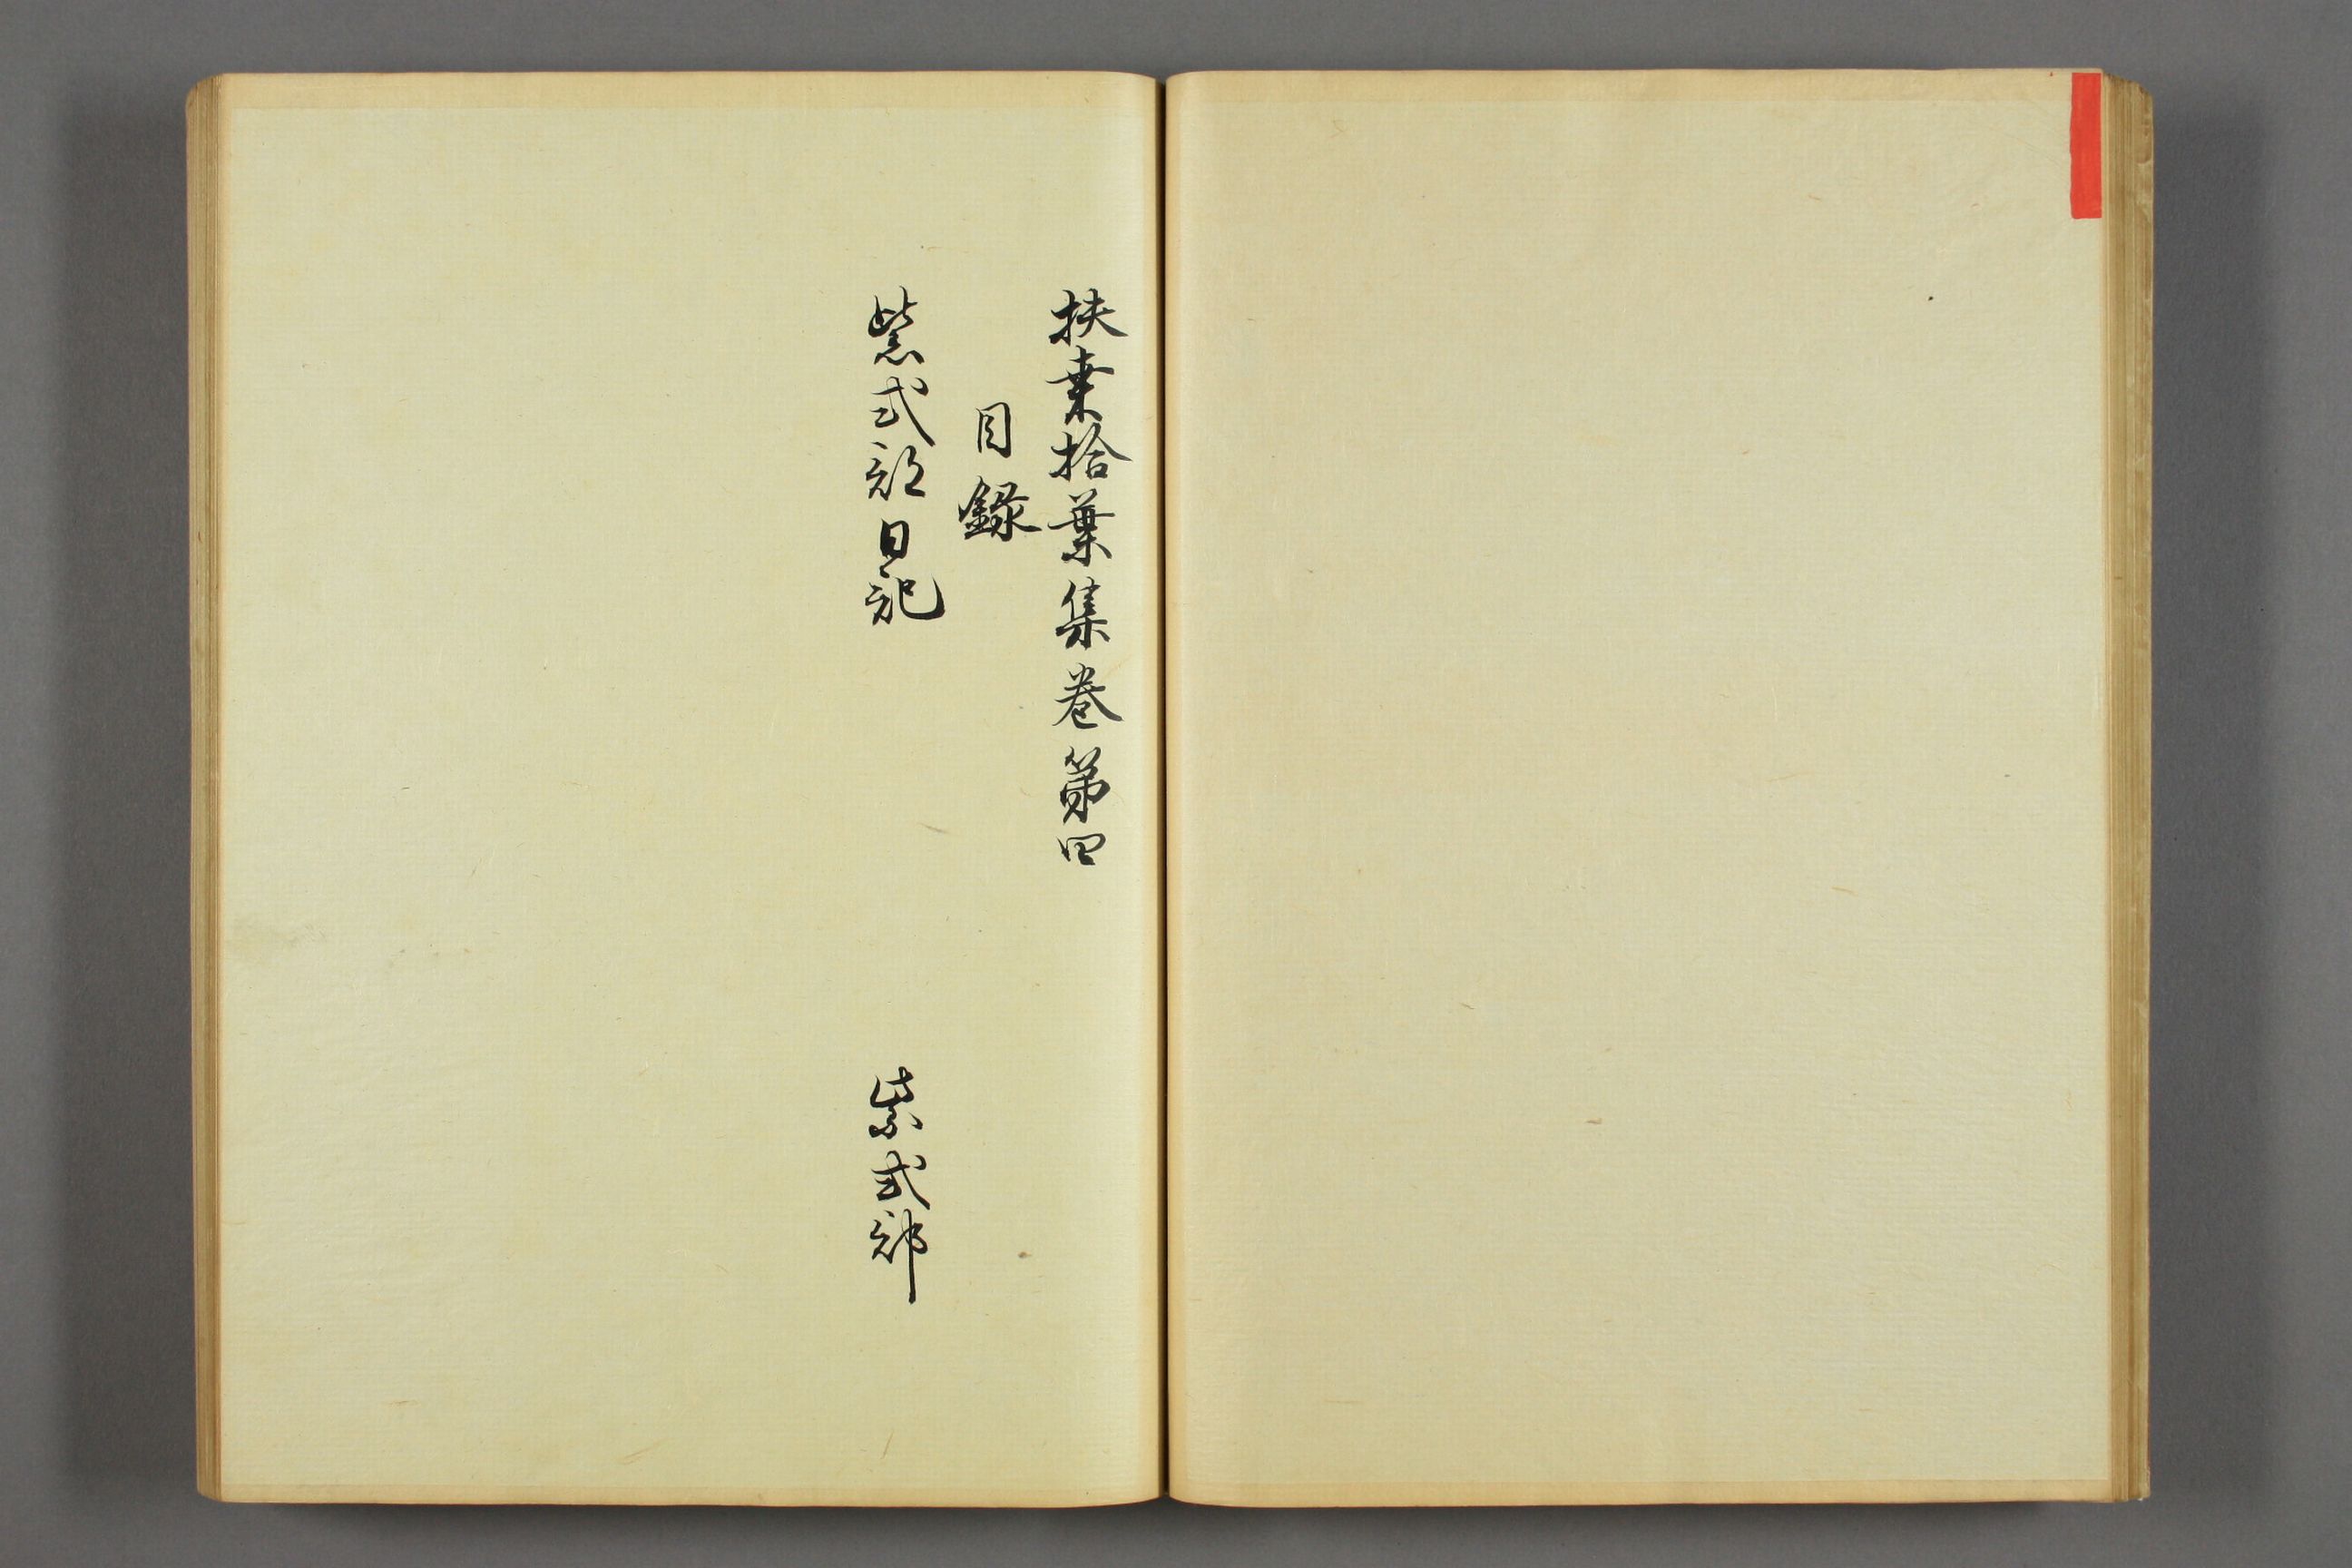 扶桒拾葉集巻第四
目録
紫式部日記
紫式部